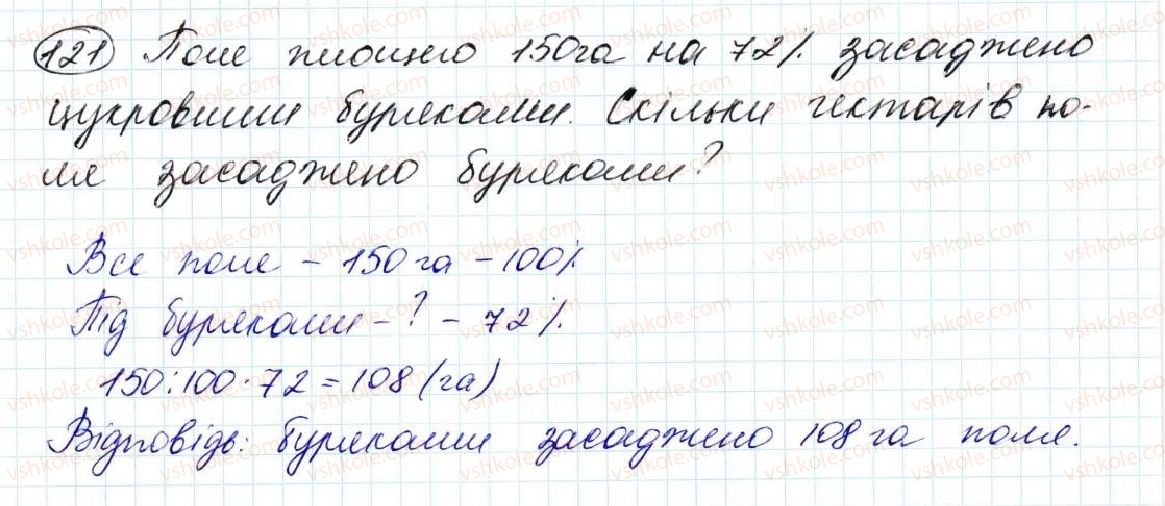 121 Поле площею 150га на 72% засаджено
цукровими буряками. Скільки гектарів по-
ля засаджено буряками?
Все поле – 150 га – 100%
Під буряками – ? – 72%.
150:100·72=108 (га)
Відповідь: буряками засаджено 108 га поля.